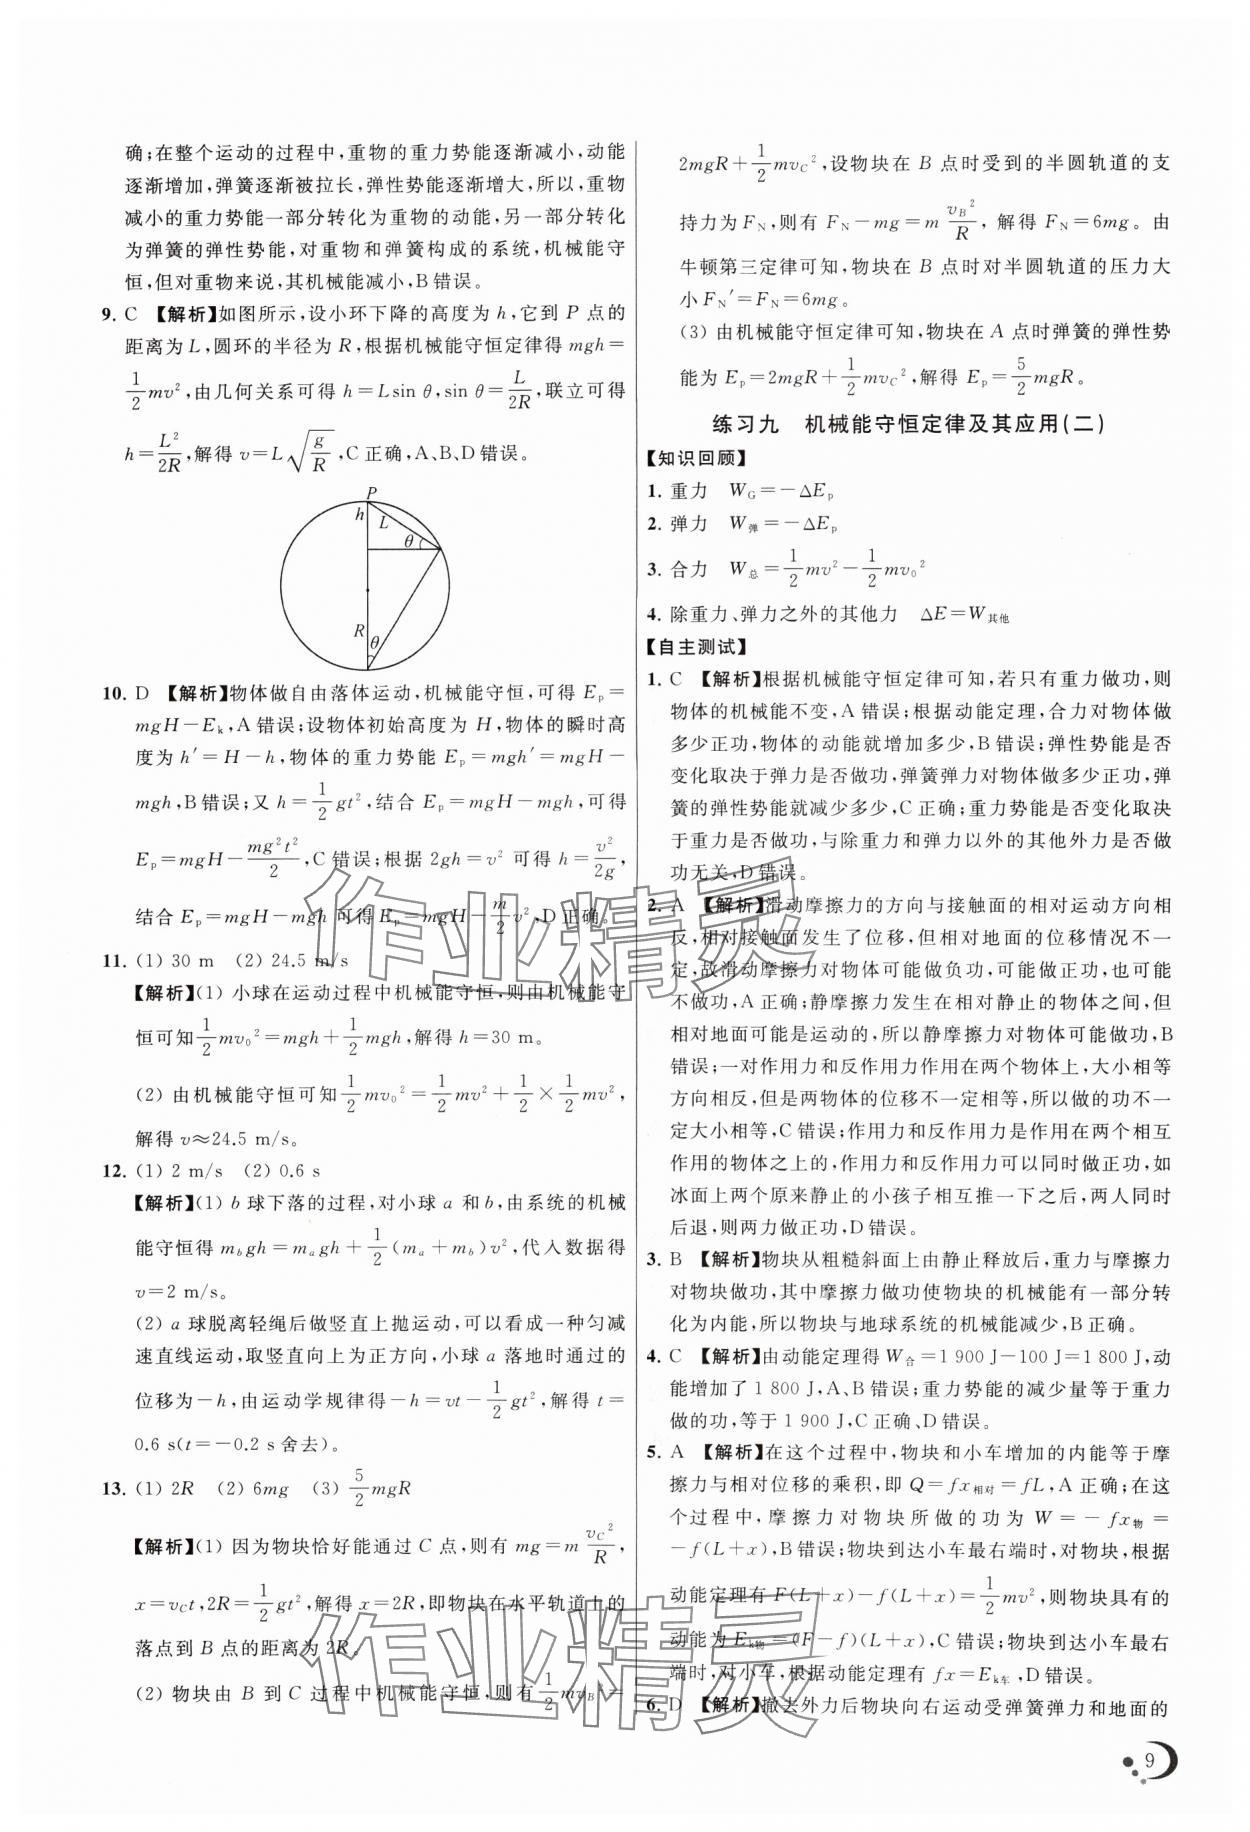 确;在整个运动的过程中,重物的重力势能逐渐减小,动能
逐渐增加,弹簧逐渐被拉长,弹性势能逐渐增大,所以,重物
减小的重力势能一部分转化为重物的动能,另一部分转化
为弹簧的弹性势能,对重物和弹簧构成的系统,机械能守
恒,但对重物来说,其机械能减小,B错误。
9. C 【解析】如图所示,设小环下降的高度为 h,它到 P 点的
距离为 L,圆环的半径为 R,根据机械能守恒定律得 mgh=
1/2 mv²,由几何关系可得 h=Lsin θ,sin θ=L/2R,联立可得
h=L²/2R,解得 v=L√(g/R),C正确,A、B、D错误。
P
h
L
θ
R
θ
10. D 【解析】物体做自由落体运动,机械能守恒,可得 Eₚ=
mgH-Eₖ,A错误;设物体初始高度为 H,物体的瞬时高
度为 h′=H-h,物体的重力势能 Eₚ=mgh′=mgH-
mgh,B错误;又 h=1/2 gt²,结合 Eₚ=mgH-mgh,可得
Eₚ=mgH-mg²t²/2,C错误;根据 2gh=v² 可得 h=v²/2g,
结合 Eₚ=mgH-mgh 可得 Eₚ=mgH-m/2 v²,D正确。
11. (1) 30 m (2) 24.5 m/s
【解析】(1) 小球在运动过程中机械能守恒,则由机械能守
恒可知 1/2 mv₀²=mgh+1/2 mgh,解得 h=30 m。
(2) 由机械能守恒可知 1/2 mv₀²=1/2 mv²+1/2×1/2 mv²,
解得 v≈24.5 m/s。
12. (1) 2 m/s (2) 0.6 s
【解析】(1) b 球下落的过程,对小球 a 和 b,由系统的机械
能守恒得 m_b gh=m_a gh+1/2(m_a+m_b)v²,代入数据得
v=2 m/s。
(2) a 球脱离轻绳后做竖直上抛运动,可以看成一种匀减
速直线运动,取竖直向上为正方向,小球 a 落地时通过的
位移为-h,由运动学规律得-h=vt-1/2 gt²,解得 t=
0.6 s(t=-0.2 s 舍去)。
13. (1) 2R (2) 6mg (3) 5/2 mgR
【解析】(1) 因为物块恰好能通过 C 点,则有 mg=m v_C²/R,
x=v_C t,2R=1/2 gt²,解得 x=2R,即物块在水平轨道上的
落点到 B 点的距离为 2R。
(2) 物块由 B 到 C 过程中机械能守恒,则有 1/2 mv_B²=
2mgR+1/2 mv_C²,设物块在 B 点时受到的半圆轨道的支
持力为 F_N,则有 F_N-mg=m v_B²/R,解得 F_N=6mg。由
牛顿第三定律可知,物块在 B 点时对半圆轨道的压力大
小 F_N′=F_N=6mg。
(3) 由机械能守恒定律可知,物块在 A 点时弹簧的弹性势
能为 Eₚ=2mgR+1/2 mv_C²,解得 Eₚ=5/2 mgR。
练习九 机械能守恒定律及其应用(二)
【知识回顾】
1. 重力 W_G=-ΔEₚ
2. 弹力 W弹=-ΔEₚ
3. 合力 W总=1/2 mv²-1/2 mv₀²
4. 除重力、弹力之外的其他力 ΔE=W其他
【自主测试】
1. C 【解析】根据机械能守恒定律可知,若只有重力做功,则
物体的机械能不变,A错误;根据动能定理,合力对物体做
多少正功,物体的动能就增加多少,B错误;弹性势能是否
变化取决于弹力是否做功,弹簧弹力对物体做多少正功,弹
簧的弹性势能就减少多少,C正确;重力势能是否变化取决
于重力是否做功,与除重力和弹力以外的其他外力是否做
功无关,D错误。
2. A 【解析】滑动摩擦力的方向与接触面的相对运动方向相
反,相对接触面发生了位移,但相对地面的位移情况不一
定,故滑动摩擦力对物体可能做负功,可能做正功,也可能
不做功,A正确;静摩擦力发生在相对静止的物体之间,但
相对地面可能是运动的,所以静摩擦力对物体可能做功,B
错误;一对作用力和反作用力作用在两个物体上,大小相等
方向相反,但是两物体的位移不一定相等,所以做的功不一
定大小相等,C错误;作用力和反作用力是作用在两个相互
作用的物体之上的,作用力和反作用力可以同时做正功,如
冰面上两个原来静止的小孩子相互推一下之后,两人同时
后退,则两力做正功,D错误。
3. B 【解析】物块从粗糙斜面上由静止释放后,重力与摩擦力
对物块做功,其中摩擦力做功使物块的机械能有一部分转
化为内能,所以物块与地球系统的机械能减少,B正确。
4. C 【解析】由动能定理得 W合=1 900 J-100 J=1 800 J,动
能增加了 1 800 J,A、B错误;重力势能的减少量等于重力
做的功,等于 1 900 J,C正确、D错误。
5. A 【解析】在这个过程中,物块和小车增加的内能等于摩
擦力与相对位移的乘积,即 Q=fx相对=fL,A正确;在这
个过程中,摩擦力对物块所做的功为 W=-fx物=
-f(L+x),B错误;物块到达小车最右端时,对物块,根据
动能定理有 F(L+x)-f(L+x)=1/2 mv²,则物块具有的
动能为 Eₖ物=(F-f)(L+x),C错误;物块到达小车最右
端时,对小车,根据动能定理有 fx=Eₖ车,D错误。
6. D 【解析】撤去外力后物块向右运动受弹簧弹力和地面的
作业精灵
作业精灵
9